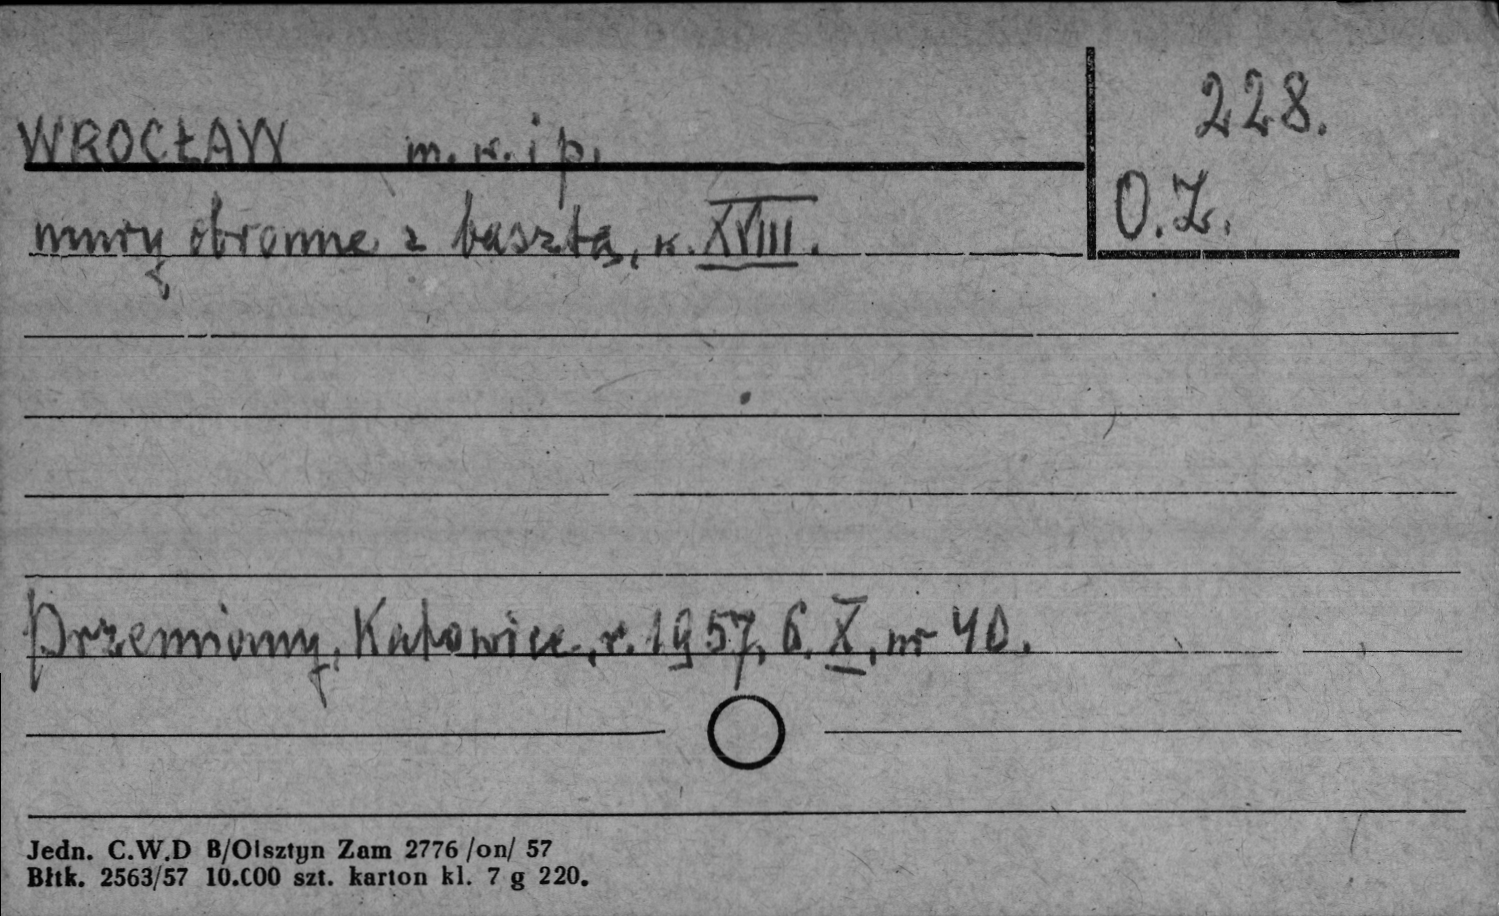 WROCŁAW m. w. i p.
228.
O.Z.
mury obronne z basztą, k. XVIII.
Przemiany, Katowice, r. 1957, 6. X, nr 40.
Jedn. C.W.D B/Olsztyn Zam 2776 /on/ 57
Błtk. 2563/57 10.000 szt. karton kl. 7 g 220.